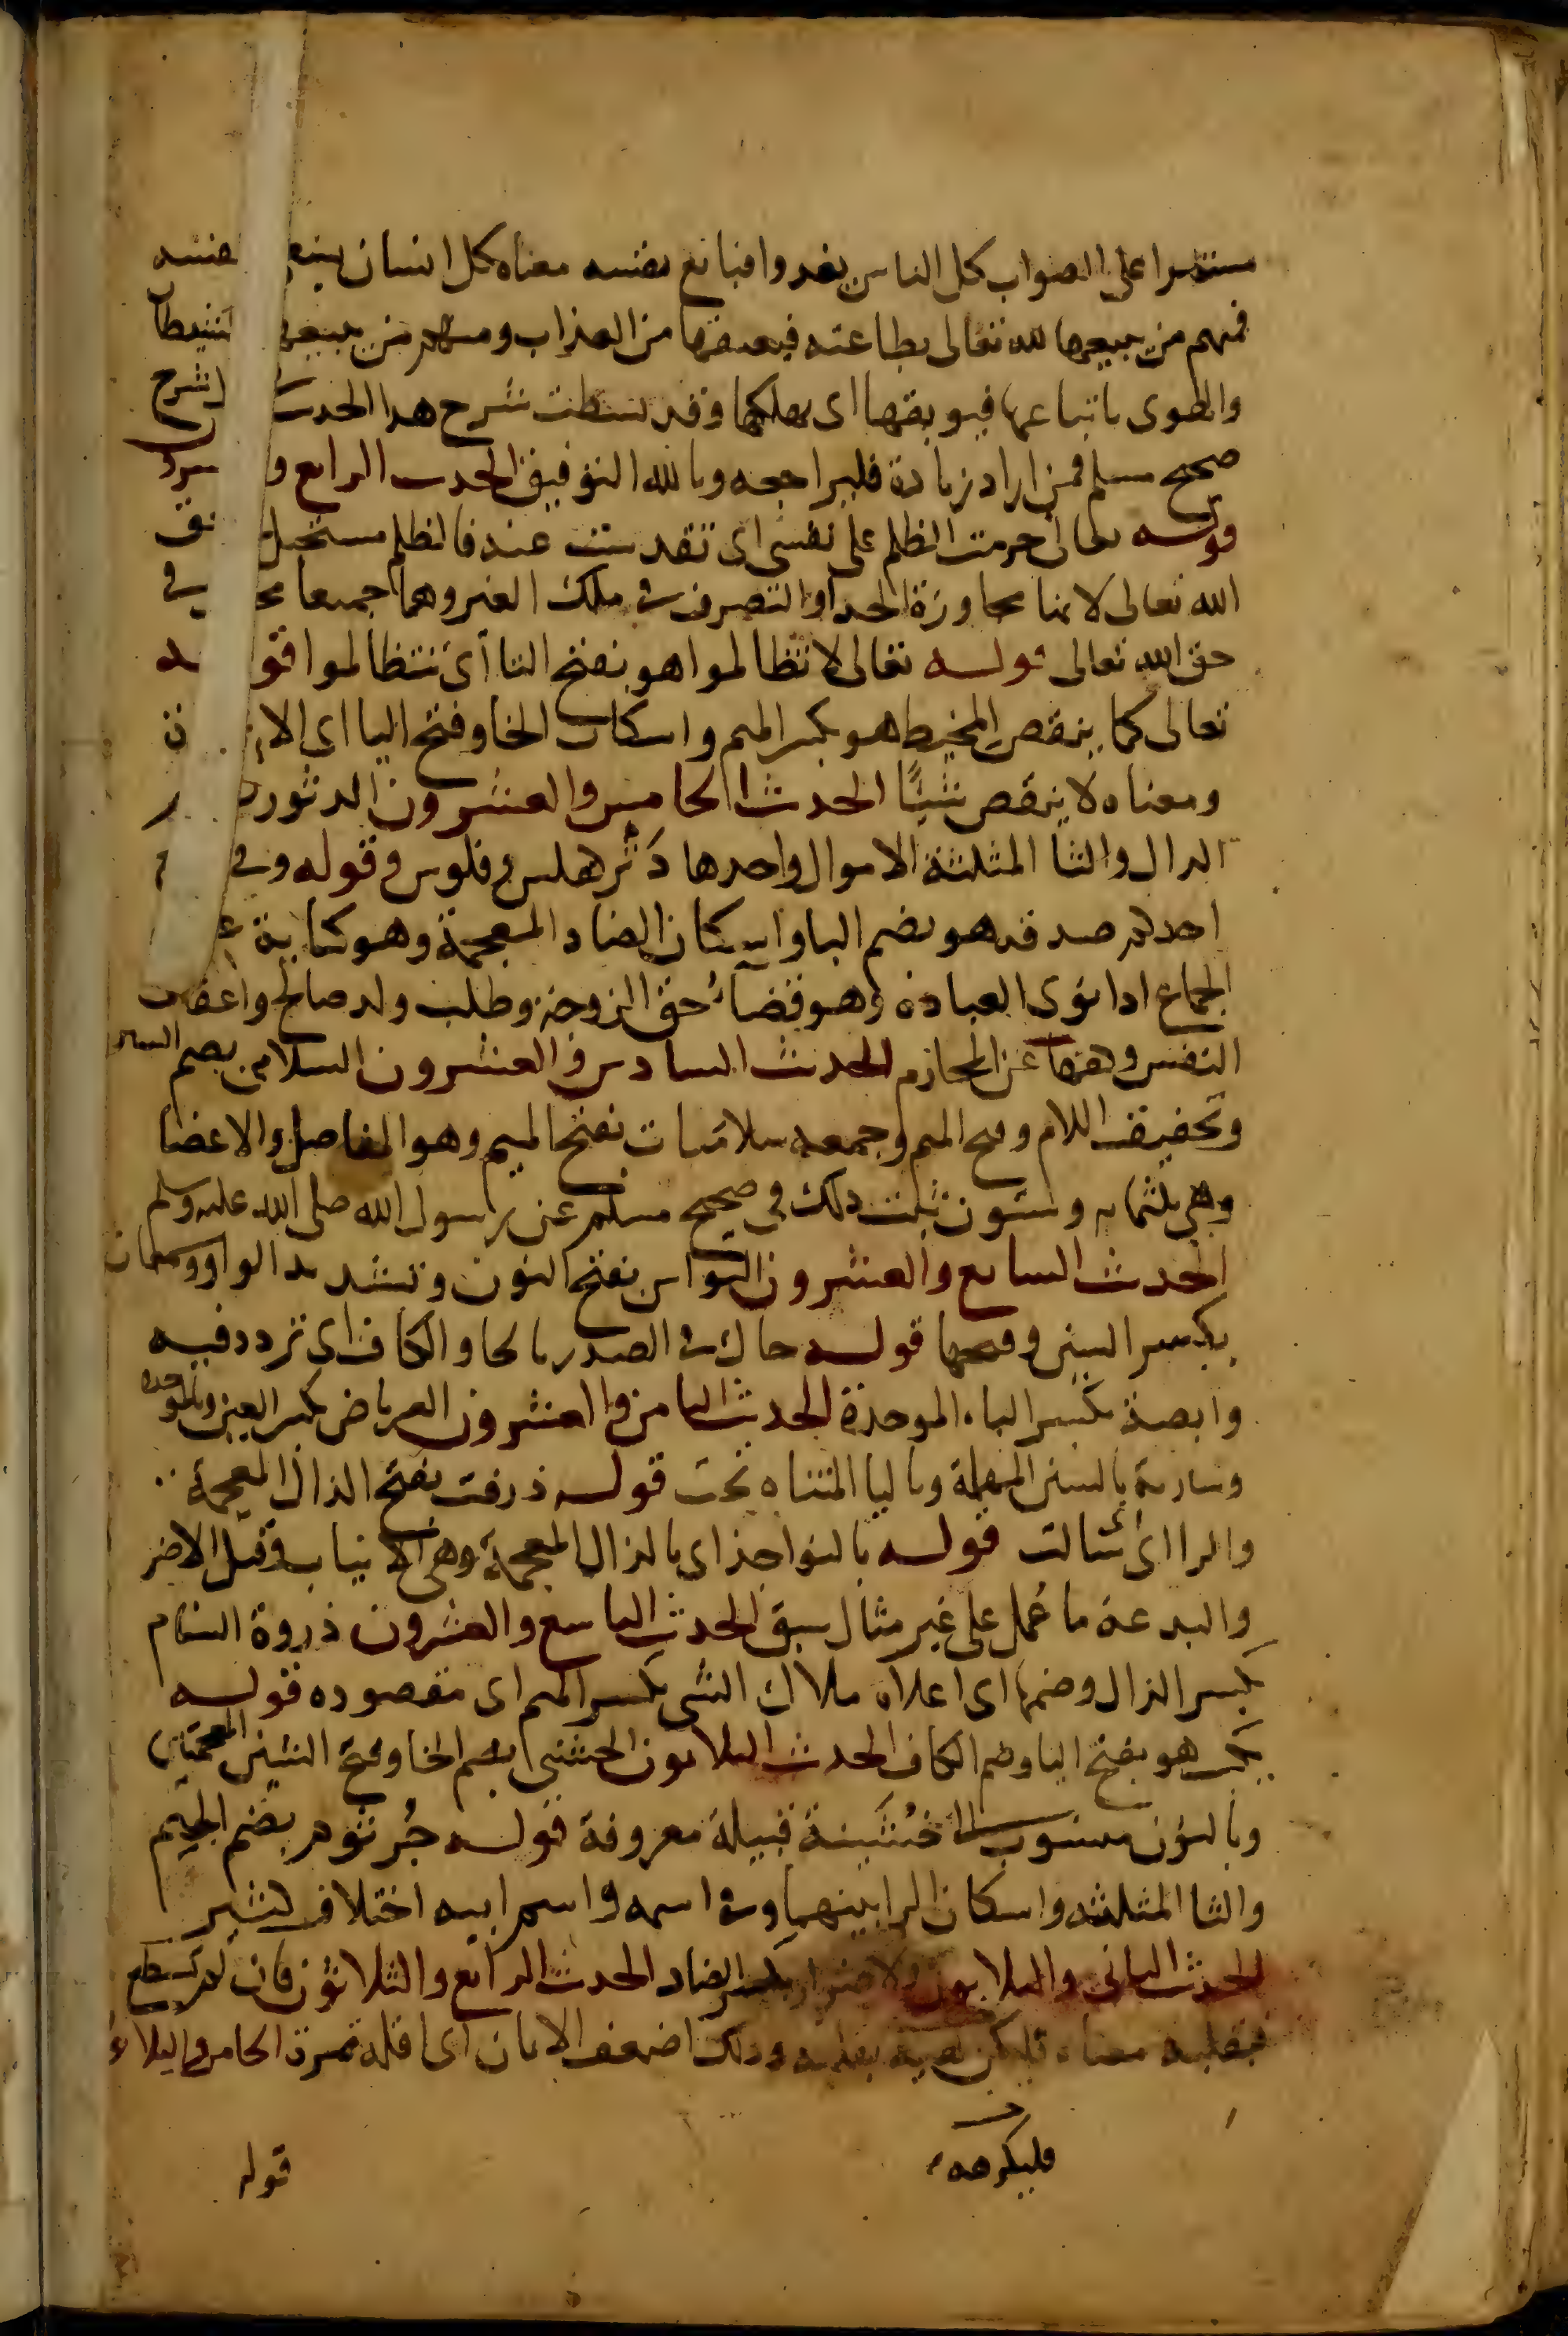 مستمرا على الصواب كل الناس يغدوا فبايع نفسه معناه كل انسان يسع نفسه
فمنهم من يبيعها لله تعالى بطاعته فيعتقها من العذاب ومنهم من يبيعها للشيطان
والهوى باتباعها فيوبقها اى يهلكها وقد بسطت شرح هذا الحديث شرح
صحيح مسلم فمن اراد زيادة فليراجعه وبالله التوفيق الحديث الرابع و
قوله تعالى حرمت الظلم على نفسى اى تقدست عنه فالظلم مستحيل
الله تعالى لانها مجاوزة الحد او التصرف فى ملك الغير وهما جميعا فى
حق الله تعالى قوله تعالى لا تظالموا هو بفتح التا أى تتظالموا قوله
تعالى كما ينقص المخيط هو بكسر الميم واسكان الخا وفتح اليا اى الا
ومعناه لا ينقص شيئا الحديث الخامس والعشرون الدثور
الدال والثا المثلثة الاموال واحدها دثر كفلس وفلوس وقوله وفى
احدكم صدقه هو بضم البا واسكان الضاد المعجمة وهو كناية
الجماع اذا نوى العبادة وهو قضاء حق الزوجة وطلب ولد صالح واعفاف
النفس وكفها عن المحارم الحديث السادس والعشرون السلامى بضم السين
وتخفيف اللام وفتح الميم وجمعه سلاميات بفتح الميم وهو المفاصل والاعضا
وهى ثلثمايه وستون ثبت ذلك فى صحيح مسلم عن رسول الله صلى الله عليه وسلم
الحديث السابع والعشرون النواس بفتح النون وتشديد الواو وسمعان
بكسر السين وفتحها قوله حاك فى الصدر بالحا والكاف اى تردد فيه
وابصة بكسر الباء الموحدة الحديث الثامن والعشرون العرباض بكسر العين وبالموحدة
وسارية بالسين المهملة وباليا المثناه تحت قوله ذرفت بفتح الذال المعجمة
والرا اى سالت قوله بالنواجذ اى بالذال المعجمة وهى الانياب وقيل الاضر
والبدعة ما عمل على غير مثال سبق الحديث التاسع والعشرون ذروة السنام
بكسر الذال وضمها اى اعلاه ملاك الشى بكسر الميم اى مقصوده قوله
يكب هو بفتح اليا وضم الكاف الحديث الثلاثون الخشنى بضم الخا وفتح الشين المعجمتين
وبالنون منسوب الى خشينة قبيلة معروفة قوله جرثوم بضم الجيم
والثا المثلثه واسكان الرا بينهما وفى اسمه واسم ابيه اختلاف كثير
الحديث الثانى والثلاثون ولا ضرار بكسر الضاد الحديث الرابع والثلاثون فان لم يستطع
فبقلبه معناه فليكن بقلبه وذلك اضعف الايمان اى اقله ثمرة الخامس والثلاثو
فليكرهه
قوله